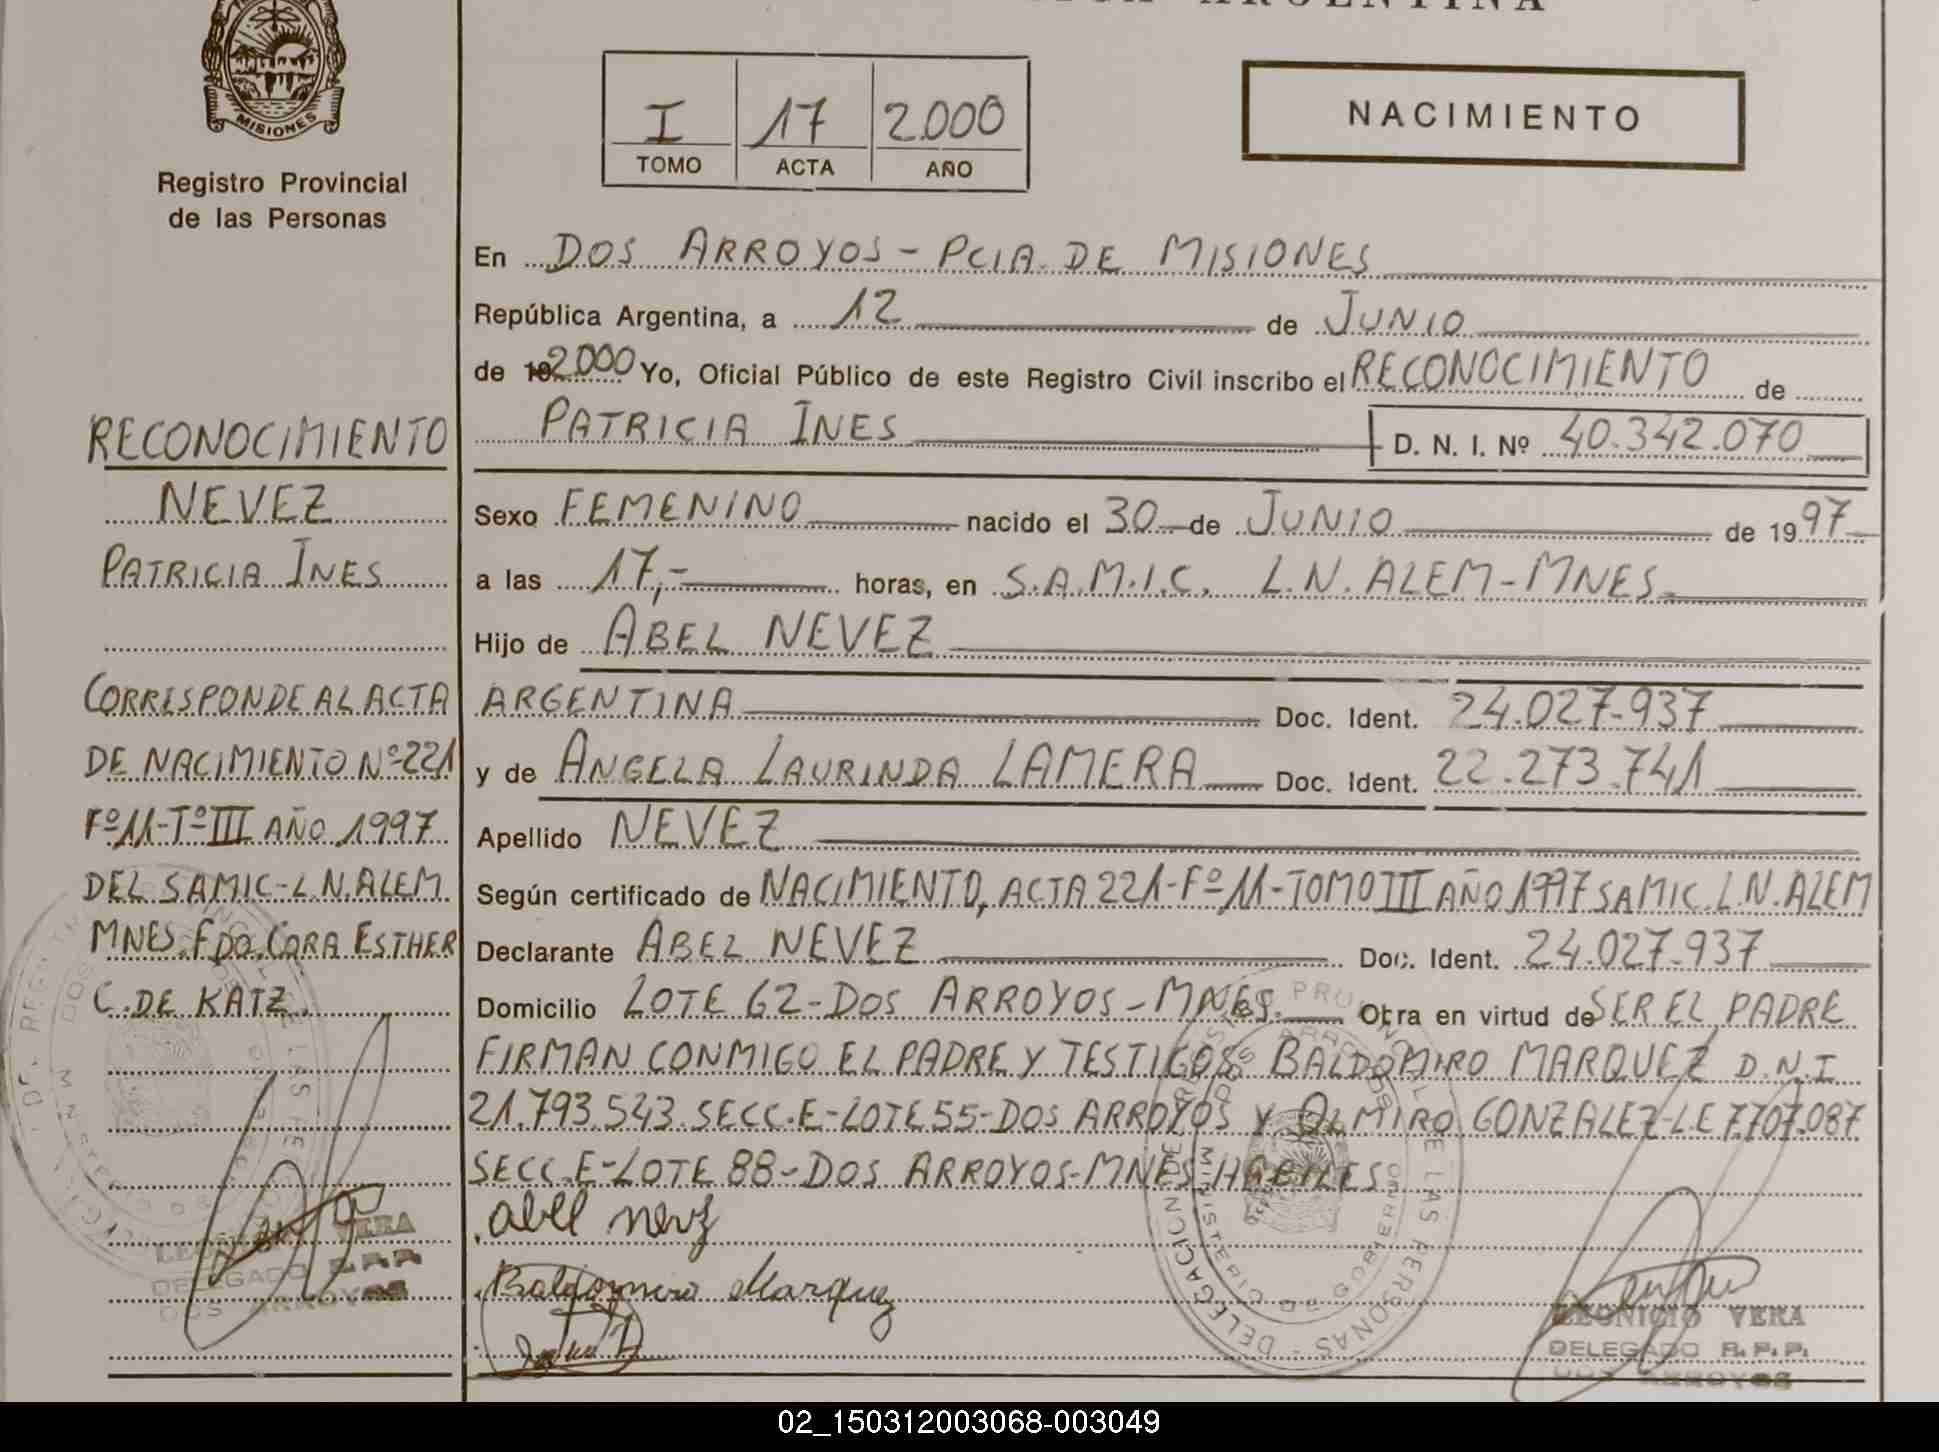 ARGENTINA
MISIONES
Registro Provincial
de las Personas
I 17 2.000
TOMO ACTA AÑO
NACIMIENTO
En DOS ARROYOS - PCIA. DE MISIONES
República Argentina, a 12 de JUNIO
de 192.000 Yo, Oficial Público de este Registro Civil inscribo el RECONOCIMIENTO de
PATRICIA INES D. N. I. Nº 40.342.070
Sexo FEMENINO nacido el 30 de JUNIO de 1997
a las 17,- horas, en S.A.M.I.C. L.N. ALEM-MNES.
Hijo de ABEL NEVEZ
ARGENTINA Doc. Ident. 24.027.937
y de ANGELA LAURINDA LAMERA Doc. Ident. 22.273.741
Apellido NEVEZ
Según certificado de NACIMIENTO, ACTA 221-Fº 11-TOMO III AÑO 1997 SAMIC. L.N. ALEM
Declarante ABEL NEVEZ Doc. Ident. 24.027.937
Domicilio LOTE 62-DOS ARROYOS-MNES. Obra en virtud de SER EL PADRE
FIRMAN CONMIGO EL PADRE Y TESTIGOS BALDOMIRO MARQUEZ D.N.I
21.793.543. SECC.E-LOTE 55-DOS ARROYOS Y OLMIRO GONZALEZ-L.E 7.707.087
SECC.E-LOTE 88-DOS ARROYOS-MNES. HABILES
abel nevz
Baldomero Marquez
LEONICIO VERA
DELEGADO R.P.P.
DOS ARROYOS
RECONOCIMIENTO
NEVEZ
PATRICIA INES
CORRESPONDE AL ACTA
DE NACIMIENTO Nº 221
Fº 11-Tº III AÑO 1997
DEL SAMIC-L.N.ALEM.
MNES. FDO. CORA ESTHER
C. DE KATZ.
VERA
DELEGADO R.P.P.
DOS ARROYOS
02_150312003068-003049